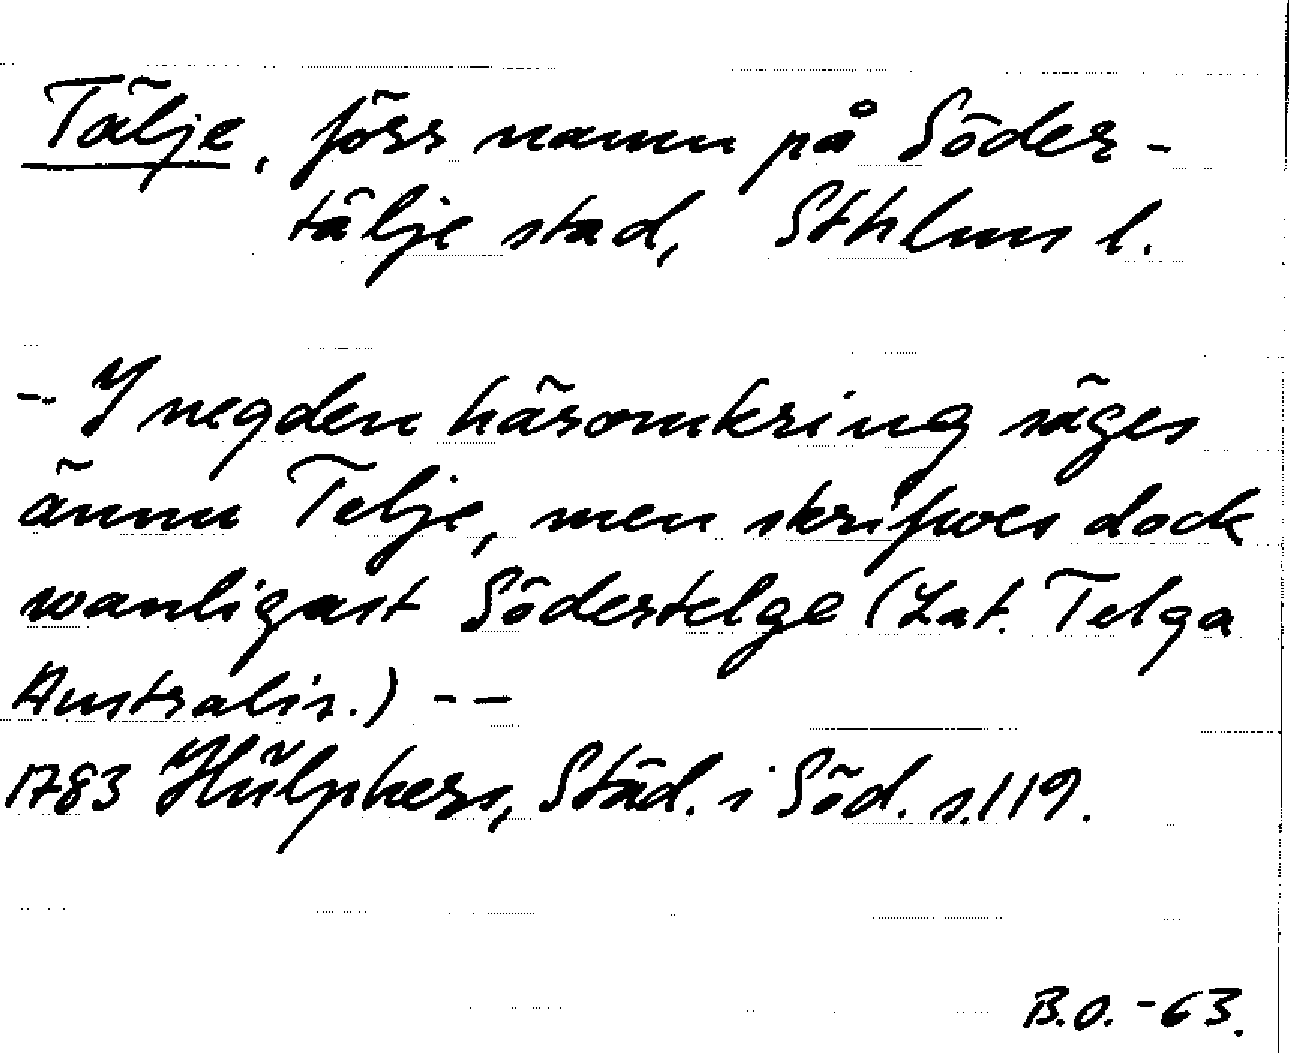 Tälje, förr namn på Söder-
tälje stad, Sthlms l.
-- I negden häromkring säges
ännu Telje, men skrifwes dock
wanligast Södertelge (Lat. Telga
Australis.) --
1783 Hülphers, Städ. i Söd. s. 119.
B.O. -63.